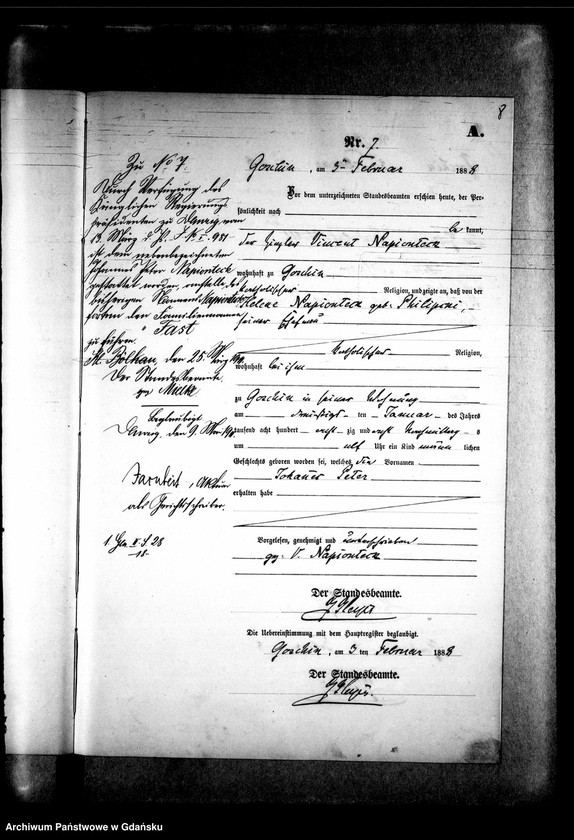 8
A.
Nr. 7.
Goschin, am 3ten Februar 1888
Vor dem unterzeichneten Standesbeamten erschien heute, der Per-
sönlichkeit nach
be kannt,
der Ziegler Vincent Napionteck
wohnhaft zu Goschin
katholischer Religion, und zeigte an, daß von der
Helene Napionteck geb. Philipski,
seiner Ehefrau
katholischer Religion,
wohnhaft bei ihm
zu Goschin in seiner Wohnung
am dreißigsten Januar des Jahres
tausend acht hundert acht zig und acht Nachmittags
um elf Uhr ein Kind männ lichen
Geschlechts geboren worden sei, welches die Vornamen
Johannes Peter
erhalten habe
Vorgelesen, genehmigt und unterschrieben
gez. V. Napionteck
Der Standesbeamte.
Die Uebereinstimmung mit dem Hauptregister beglaubigt.
Goschin, am 3 ten Februar 1888
Der Standesbeamte.
Zu No 7.
Durch Verfügung des
Königlichen Regierungs
präsidenten zu Danzig vom
13. März
ist dem nebenbezeichneten
Johannes Peter Napionteck
gestattet worden, anstelle des
bisherigen Namens Napionteck
fortan den Familiennamen
" Fast "
zu führen.
Kl. Bölkau, den 25. März
Der Standesbeamte.
gez.
Beglaubigt.
Danzig, den 9.
als Gerichtsschreiber.
Archiwum Państwowe w Gdańsku